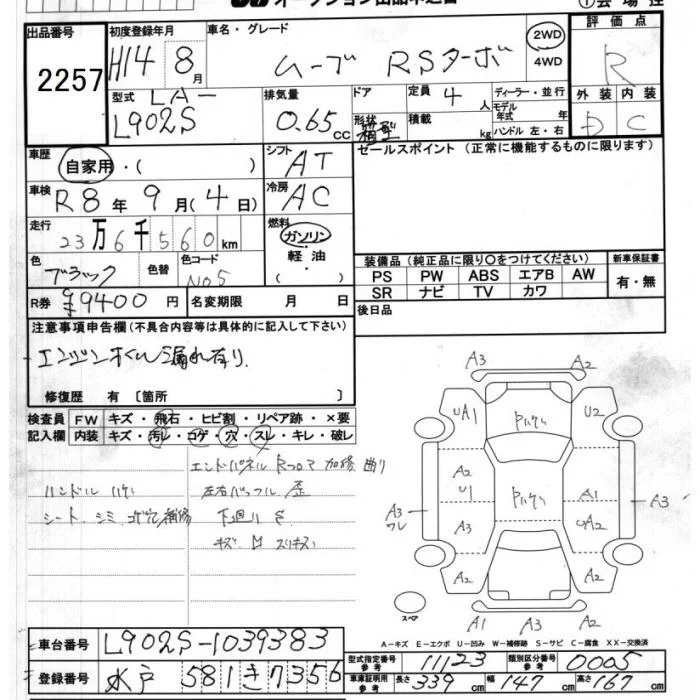 オークション出品申込書
①会場控
出品番号 2257
初度登録年月 H14 8月
車名・グレード ムーブ RSターボ
2WD
4WD
評価点 R
外装 内装
D C
型式 LA-
L902S
排気量 0.65 CC
ドア
形状 箱型
定員 4 人
積載 kg
ディーラー・並行
モデル年式 年
ハンドル 左・右
車歴 自家用・( )
シフト AT
セールスポイント(正常に機能するものに限ります)
車検 R8年 9月(4日)
冷房 AC
走行 23万6千560km
燃料 ガソリン・軽油・( )
色 ブラック
色替
色コード No5
装備品(純正品に限り○をつけてください)
新車保証書
PS PW ABS エアB AW
有・無
SR ナビ TV カワ
R券 ¥9400円
名変期限 月 日
後日品
注意事項申告欄(不具合内容等は具体的に記入して下さい)
修復歴 有〔箇所 〕
検査員記入欄
FW キズ・飛石・ヒビ割・リペア跡・×要
内装 キズ・汚レ・コゲ・穴・スレ・キレ・破レ
加修 曲り
ハンドル ハゲ
下廻り サ
A3 A2
UA1 U2
A2
U1 A1
A3
ワレ A3 UA2 A3
A2 A2
スペア
A1 A3
A−キズ E−エクボ U−凹み W−補修跡 S−サビ C−腐食 XX−交換済
車台番号 L902S-1039383
登録番号 水戸 581 き 7356
型式指定番号 参考 11123
類別区分番号 参考 0005
車庫証明用 参考 長さ 339cm 幅 147cm 高さ 167cm